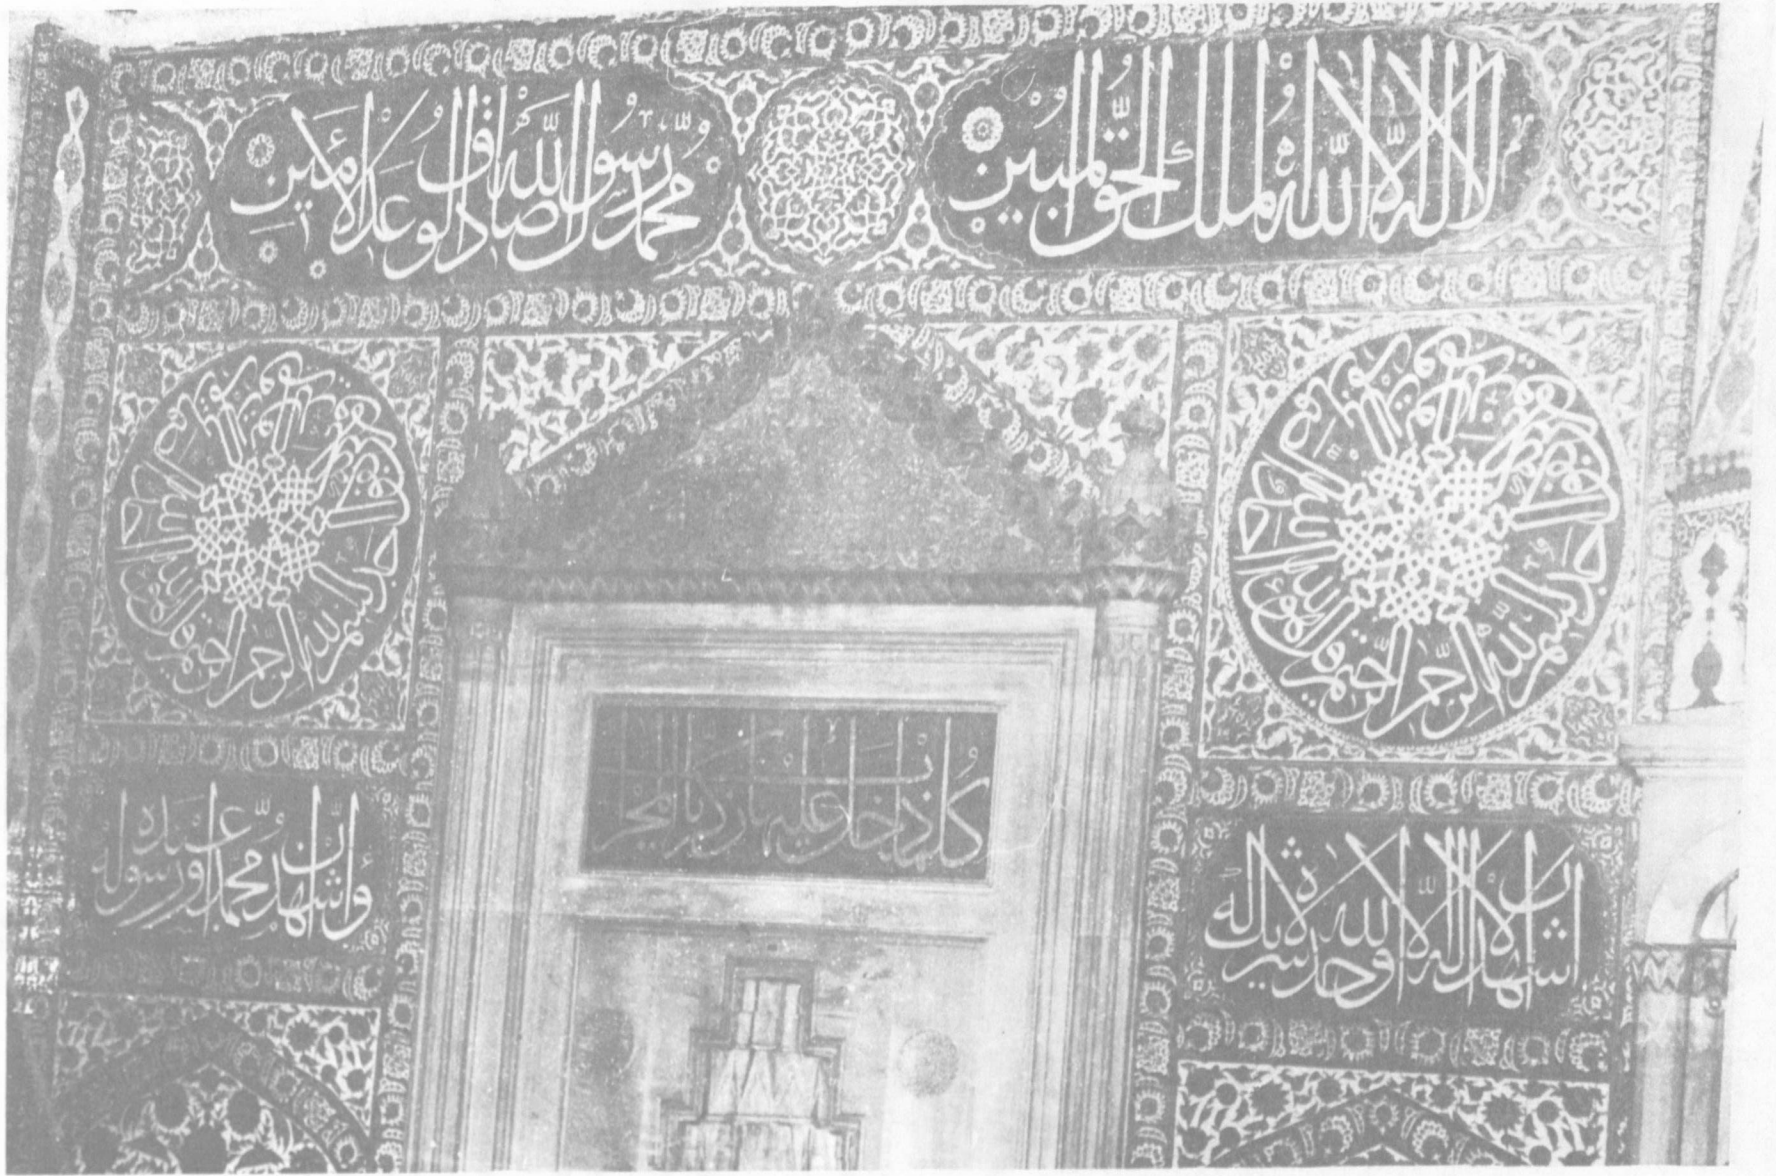 لا اله الا الله الملك الحق المبين
محمد رسول الله صادق الوعد الامين
بسم الله الرحمن الرحيم قل هو الله
بسم الله الرحمن الرحيم قل هو الله
كلما دخل عليها زكريا المحراب
اشهد ان لا اله الا الله وحده لا شريك له
واشهد ان محمدا عبده ورسوله